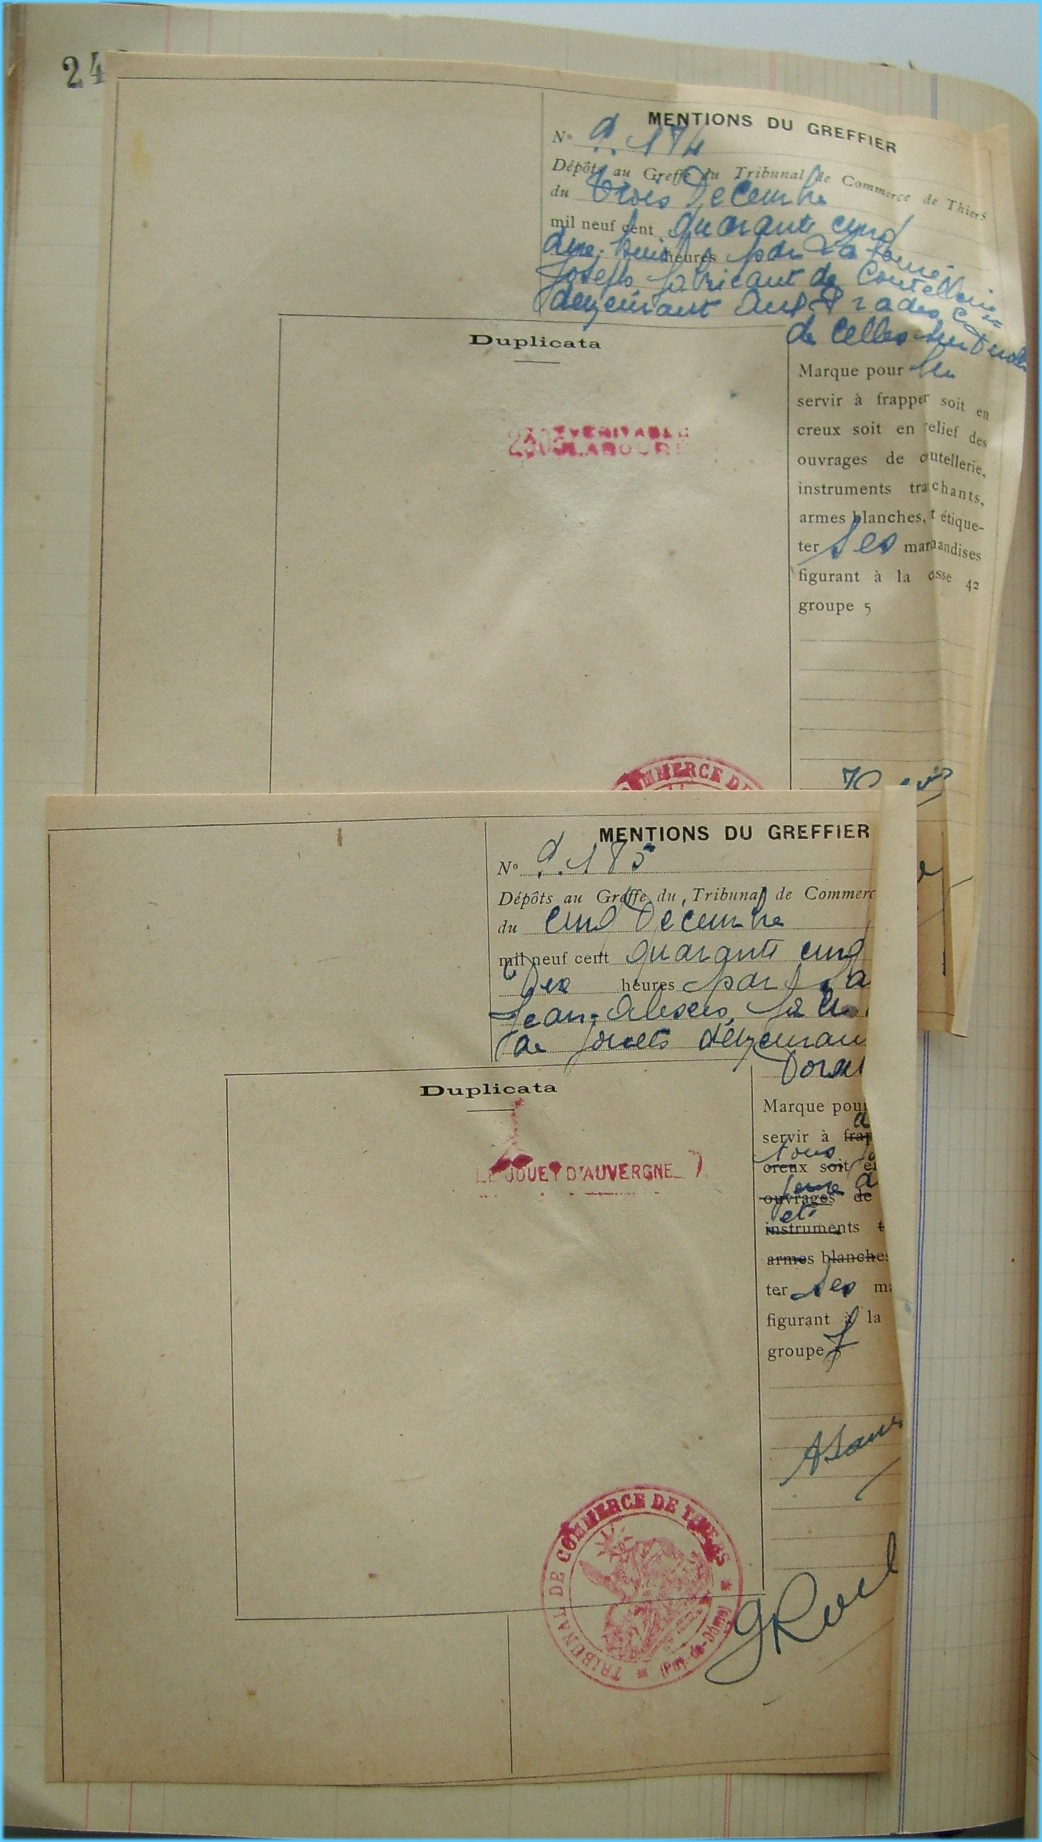 24
MENTIONS DU GREFFIER
N° d. 174
Dépôts au Greffe du Tribunal de Commerce de Thiers
du trois Decembre
mil neuf cent quarante cinq
heures par
Joseph fabricant de Coutellerie
demeurant aux Prades Cne
de Celles sur Durolle
Duplicata
VERITABLE
LABOUR
Marque pour
servir à frapper soit en
creux soit en relief des
ouvrages de coutellerie,
instruments tranchants,
armes blanches, t étique-
ter ses marchandises
figurant à la classe 42
groupe 5
COMMERCE DE
MENTIONS DU GREFFIER
N° d. 175
Dépôts au Greffe du Tribunal de Commerc
du cinq Decembre
mil neuf cent quarante cinq
heures par
Jean
de jouets demeuran
Duplicata
LE JOUET D'AUVERGNE
Marque pour
servir à frap
tous
creux soit e
ouvrages de
et
instruments t
armes blanches
ter ses ma
figurant à la
groupe 7
TRIBUNAL DE COMMERCE DE THIERS
(Puy-de-Dôme)